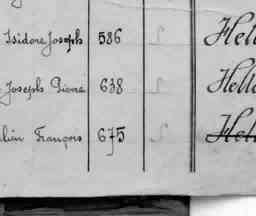 Isidore Joseph 586 Hell
Joseph Pierre 638 Hell
lin François 675 Hell